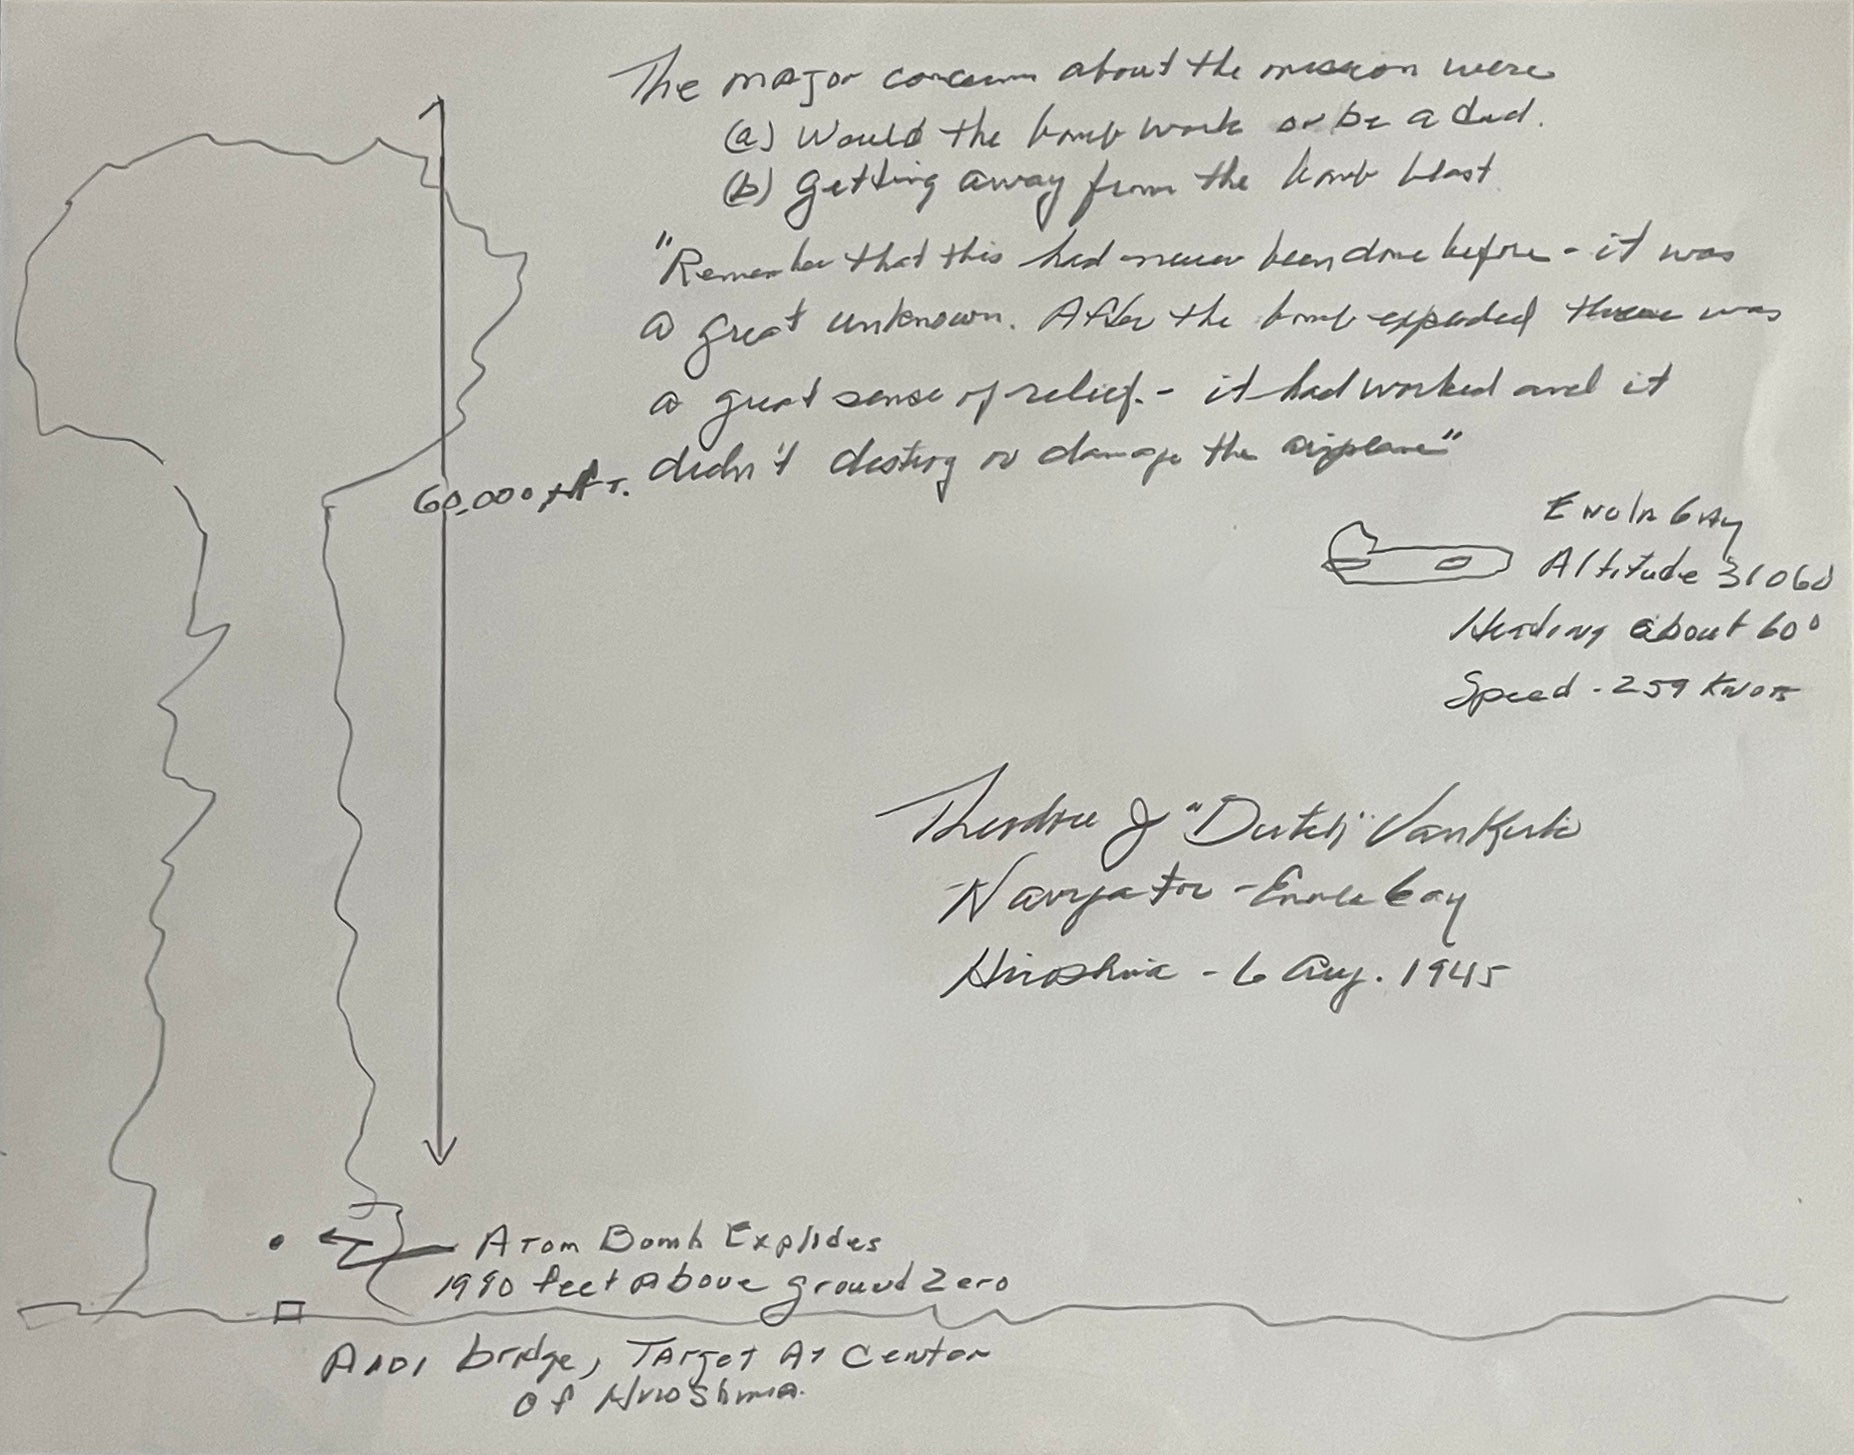 The major concern about the mission were
(a) Would the bomb work or be a dud.
(b) Getting away from the bomb blast
"Remember that this had never been done before - it was
a great unknown. After the bomb exploded there was
a great sense of relief. - it had worked and it
didn't destroy or damage the airplane"
60,000 FT.
Enola Gay
Altitude 31060
Heading about 60°
Speed - 259 Knots
Theodore J "Dutch" VanKirk
Navigator - Enola Gay
Hiroshima - 6 Aug. 1945
Atom Bomb Explodes
1990 feet above ground zero
Aioi bridge, Target At Center
of Hiroshima.